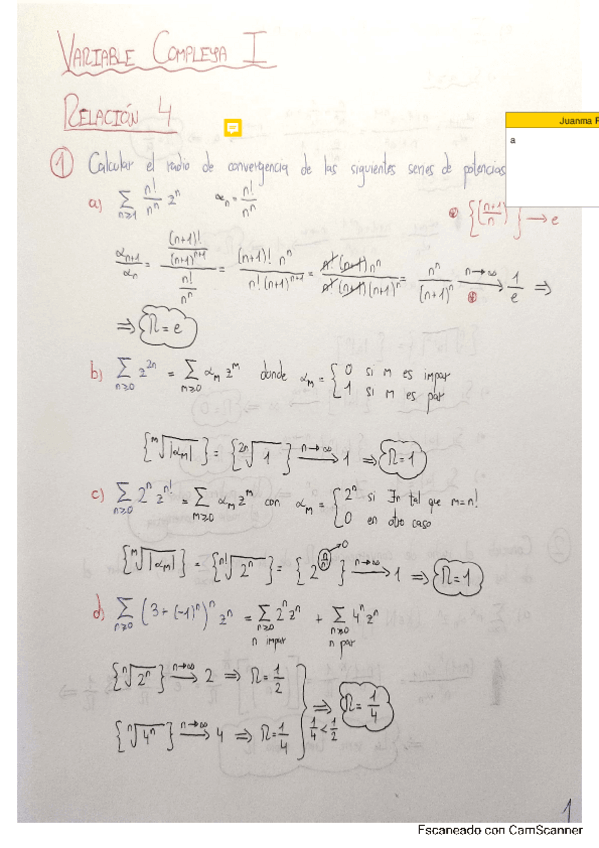 VARIABLE COMPLEJA I
RELACIÓN 4
Juanma
a
① Calcular el radio de convergencia de las siguientes series de potencias
a) ∑_{n≥1} n!/n^n z^n   α_n = n!/n^n
⊛ {((n+1)/n)^n} → e
α_{n+1}/α_n = ((n+1)!/(n+1)^{n+1})/(n!/n^n) = (n+1)! n^n/(n!(n+1)^{n+1}) = n!(n+1)n^n/(n!(n+1)(n+1)^n) = n^n/(n+1)^n →^{n→∞}_⊛ 1/e ⇒
⇒ R = e
b) ∑_{n≥0} z^{2n} = ∑_{m≥0} α_m z^m donde α_m = { 0 si m es impar
1 si m es par
{ᵐ√|α_m|} = {²ⁿ√1} →^{n→∞} 1 ⇒ R=1
c) ∑_{n≥0} 2^n z^{n!} = ∑_{m≥0} α_m z^m con α_m = { 2^n si ∃n tal que m=n!
0 en otro caso
{ᵐ√|α_m|} = {ⁿ!√2^n} = {2^{n/n!}} →^{n→∞} 1 ⇒ R=1
→0
d) ∑_{n≥0} (3+(-1)^n)^n z^n = ∑_{n≥0} 2^n z^n + ∑_{n≥0} 4^n z^n
n impar n par
{ⁿ√2^n} →^{n→∞} 2 ⇒ R = 1/2
⇒ R = 1/4
1/4 < 1/2
{ⁿ√4^n} →^{n→∞} 4 ⇒ R = 1/4
1
Escaneado con CamScanner